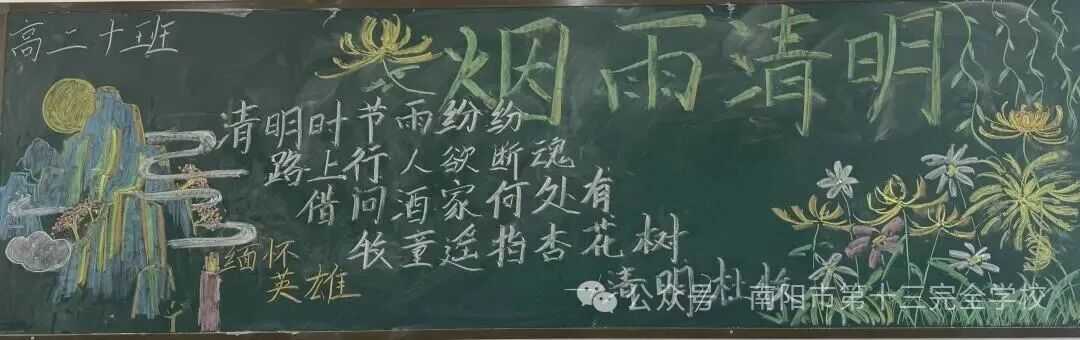 高二十班
烟雨清明
清明时节雨纷纷
路上行人欲断魂
借问酒家何处有
牧童遥挡杏花树
清明 杜牧
缅怀
英雄
公众号 南阳市第十三完全学校